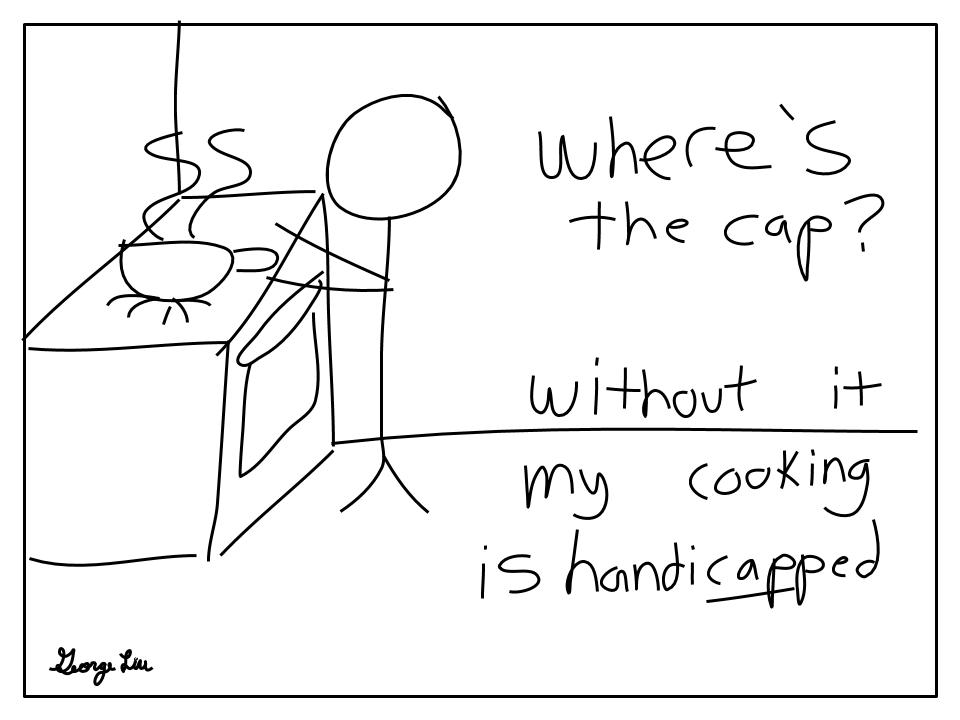 where's
the cap?
without it
my cooking
is handicapped
George Liu